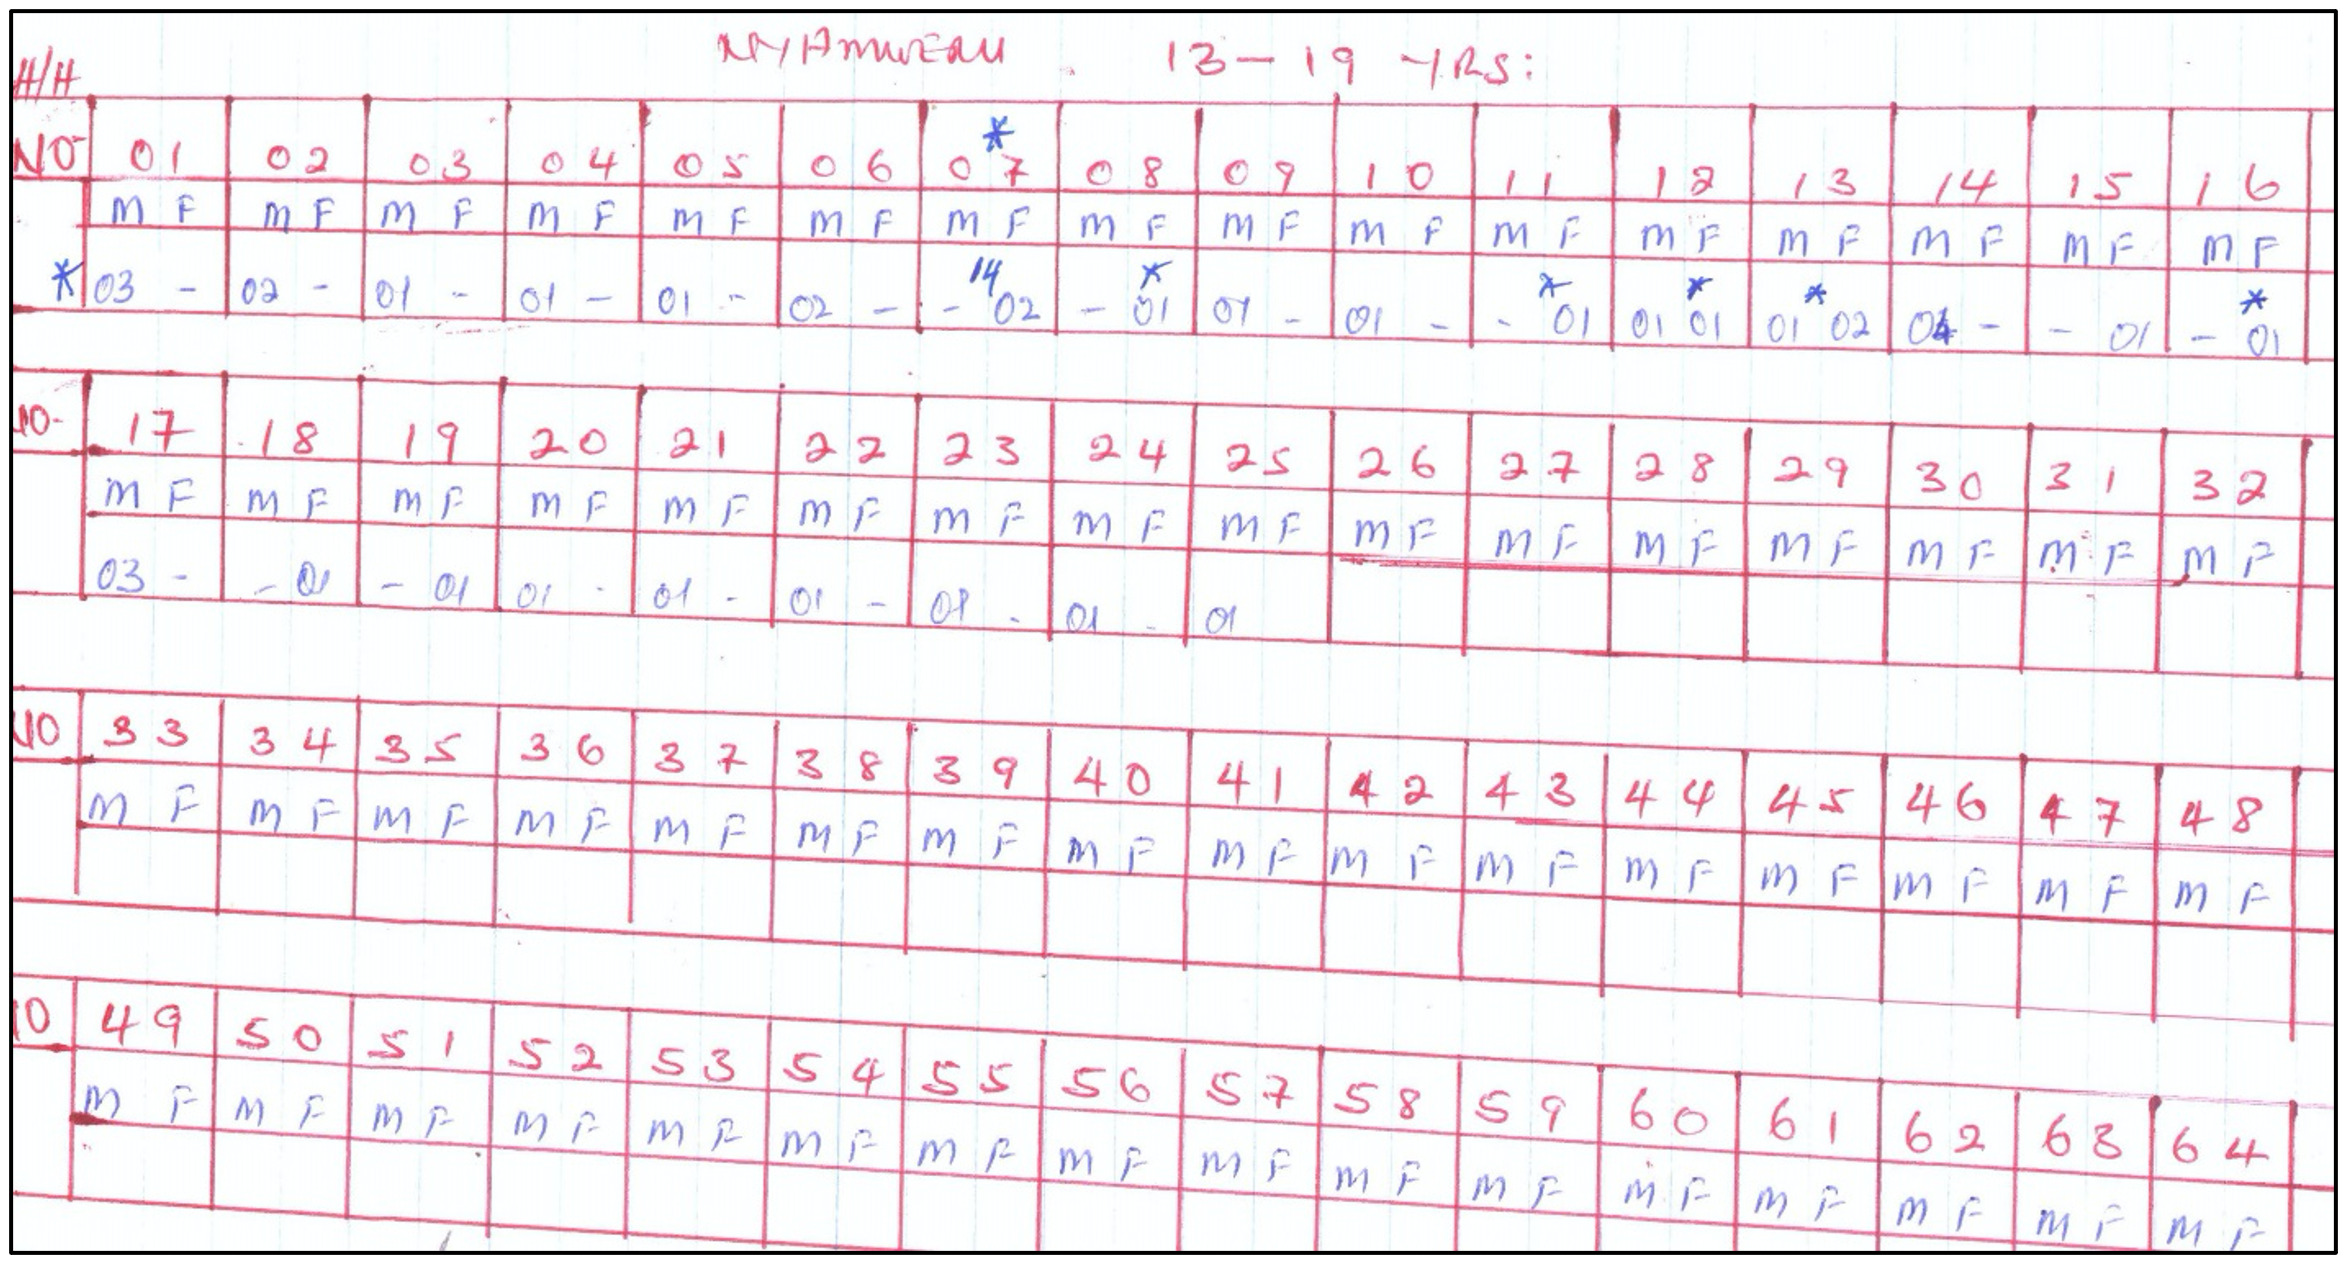 13-19 YRS:
H/H
NO 01 02 03 04 05 06 07 * 08 09 10 11 12 13 14 15 16
M F M F M F M F M F M F M F M F M F M F M F M F M F M F M F M F
* 03 - 02 - 01 - 01 - 01 - 02 - - 14 02 - * 01 01 - 01 - - * 01 01 * 01 01 * 02 04 - - 01 - * 01
NO- 17 18 19 20 21 22 23 24 25 26 27 28 29 30 31 32
M F M F M F M F M F M F M F M F M F M F M F M F M F M F M F M F
03 - - 01 - 01 01 - 01 - 01 - 01 - 01 - 01
NO 33 34 35 36 37 38 39 40 41 42 43 44 45 46 47 48
M F M F M F M F M F M F M F M F M F M F M F M F M F M F M F M F
NO 49 50 51 52 53 54 55 56 57 58 59 60 61 62 63 64
M F M F M F M F M F M F M F M F M F M F M F M F M F M F M F M F